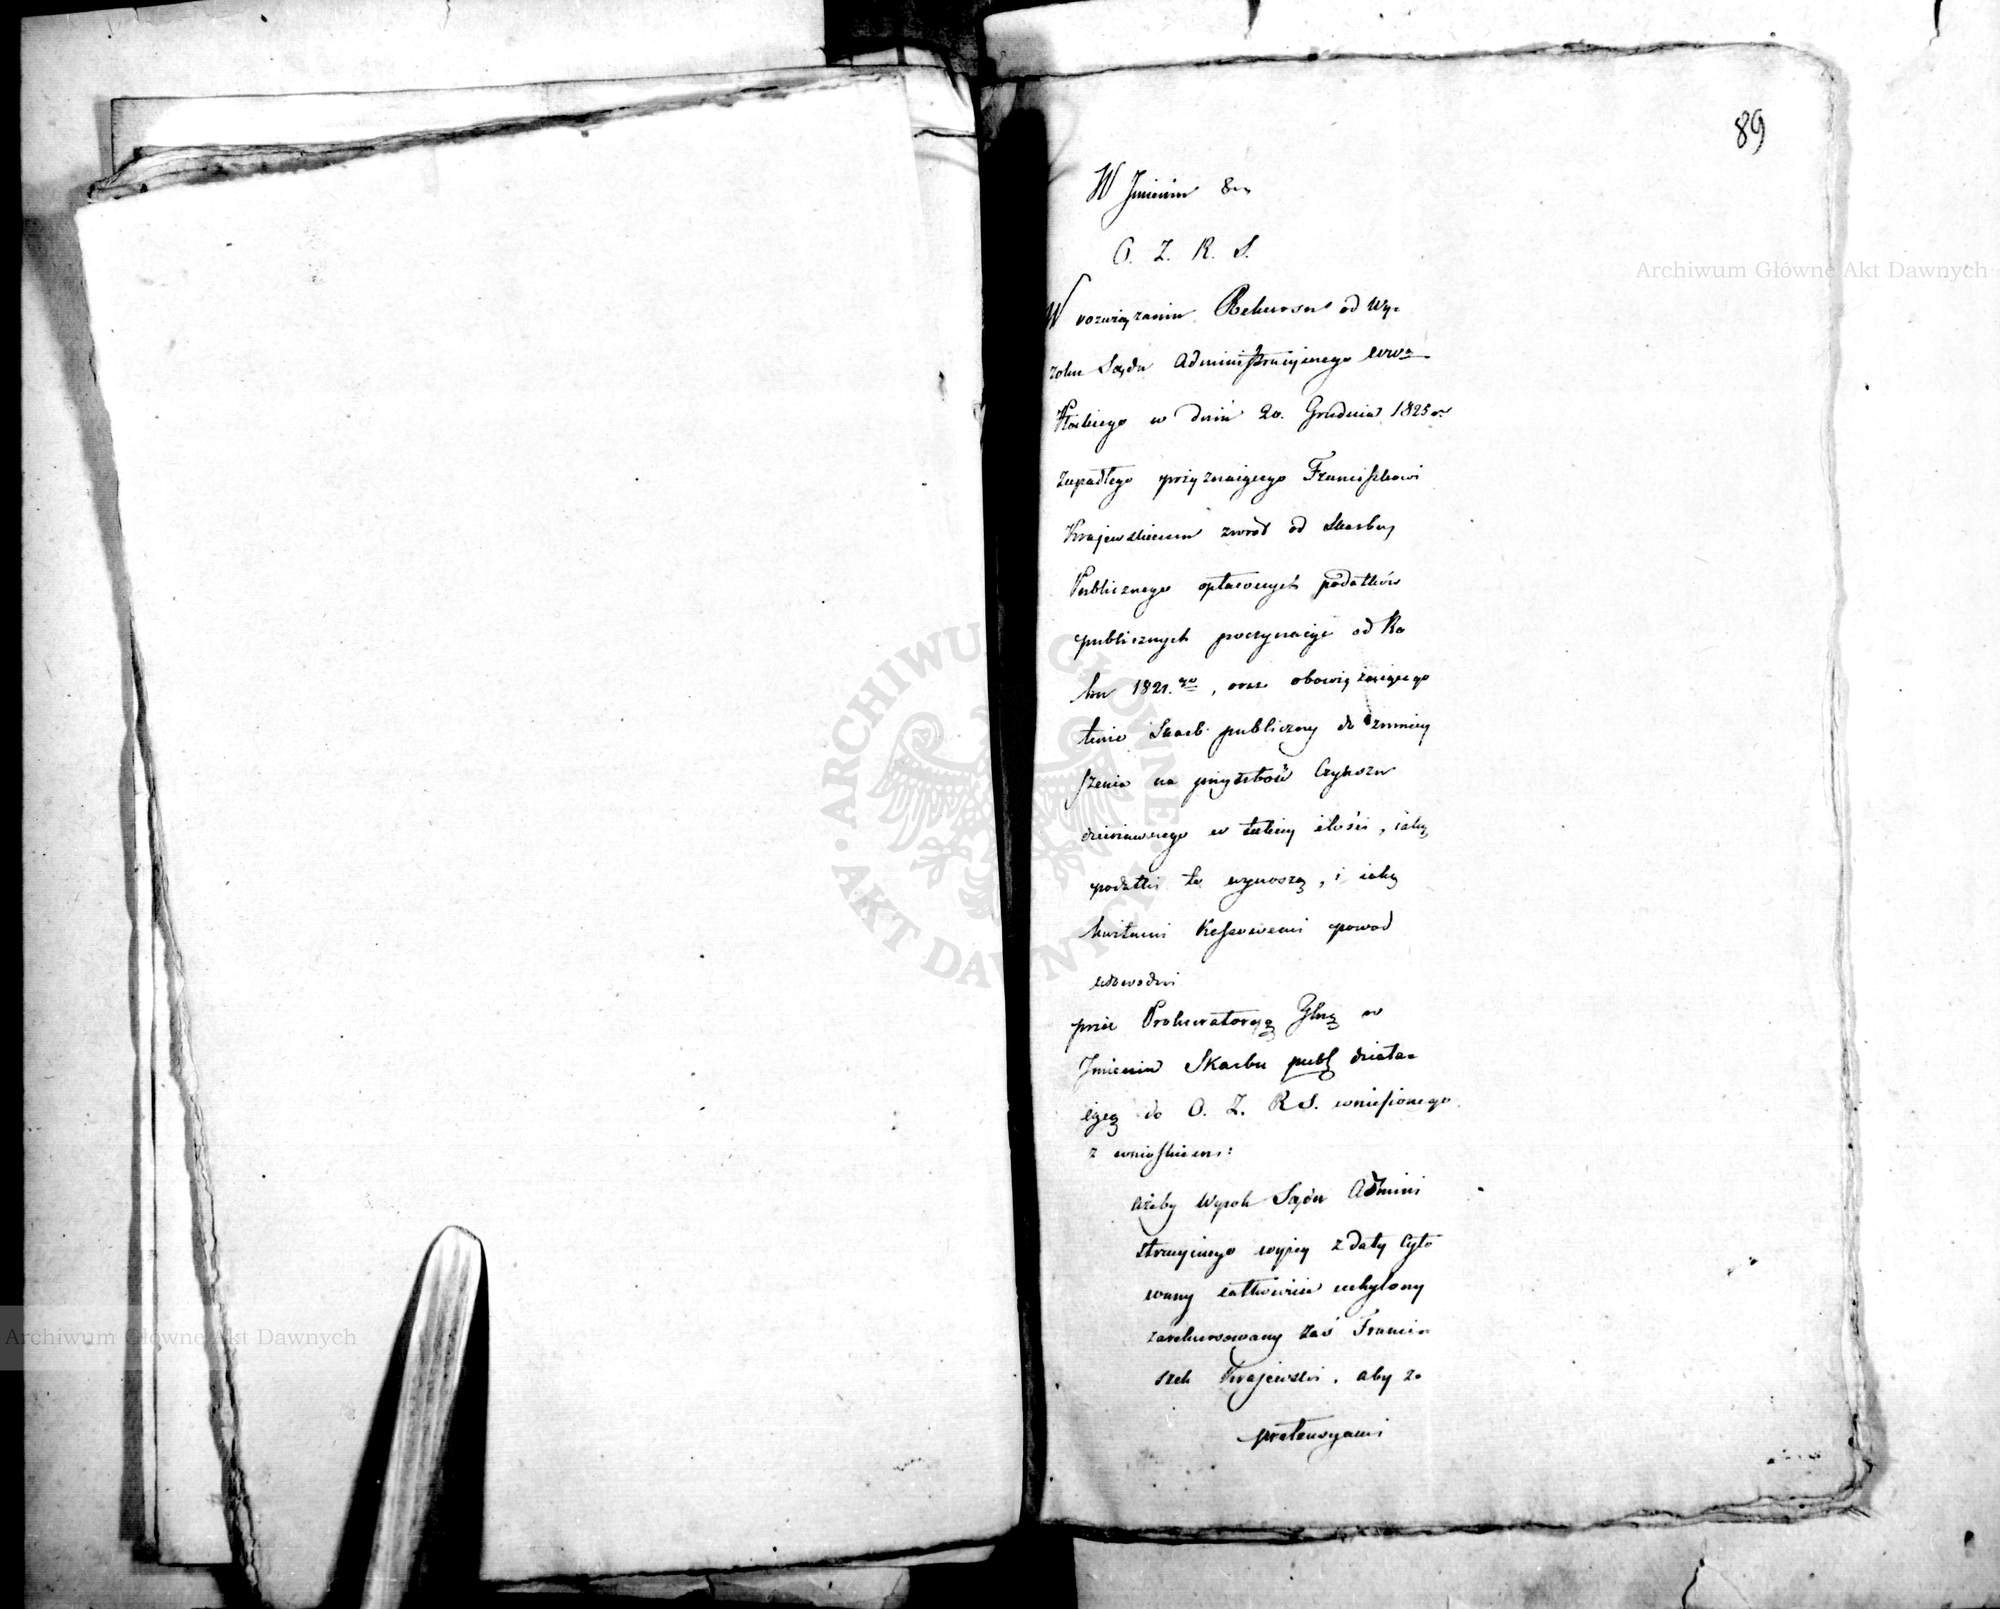 89
W Jmieniu &c
O. Z. R. S.
W rozwiązaniu Rekursu od Wy-
roku Sądu Administracyinego Wwa
Płockiego w dniu 20. Grudnia 1825 r.
zapadłego przyznaiącego Franciszkowi
Krajewskiemu zwrot od Skarbu
Publicznego opłaconych podatków
publicznych poczynaiąc od Ro
ku 1821.go, oraz obowiązuiącego
tenże Skarb publiczny do zmniey
szenia na przyszłość Czynszu
dzierżawnego w takiey ilości, iaką
podatki te wynoszą, i iaką
kwitami Kassowemi powod
udowodni
przez Prokuratoryą Jlną w
Jmieniu Skarbu publ działa-
iącą do O. Z. R S. wniesionego
z wnioskiem:
ażeby Wyrok Sądu Admini
stracyinego wyżey z daty Cyto
wany całkowicie uchylony
zarekursowany zaś Franci-
szek Krajewski, aby z
pretensyami
Archiwum Główne Akt Dawnych
Archiwum Główne Akt Dawnych
ARCHIWUM GŁÓWNE AKT DAWNYCH